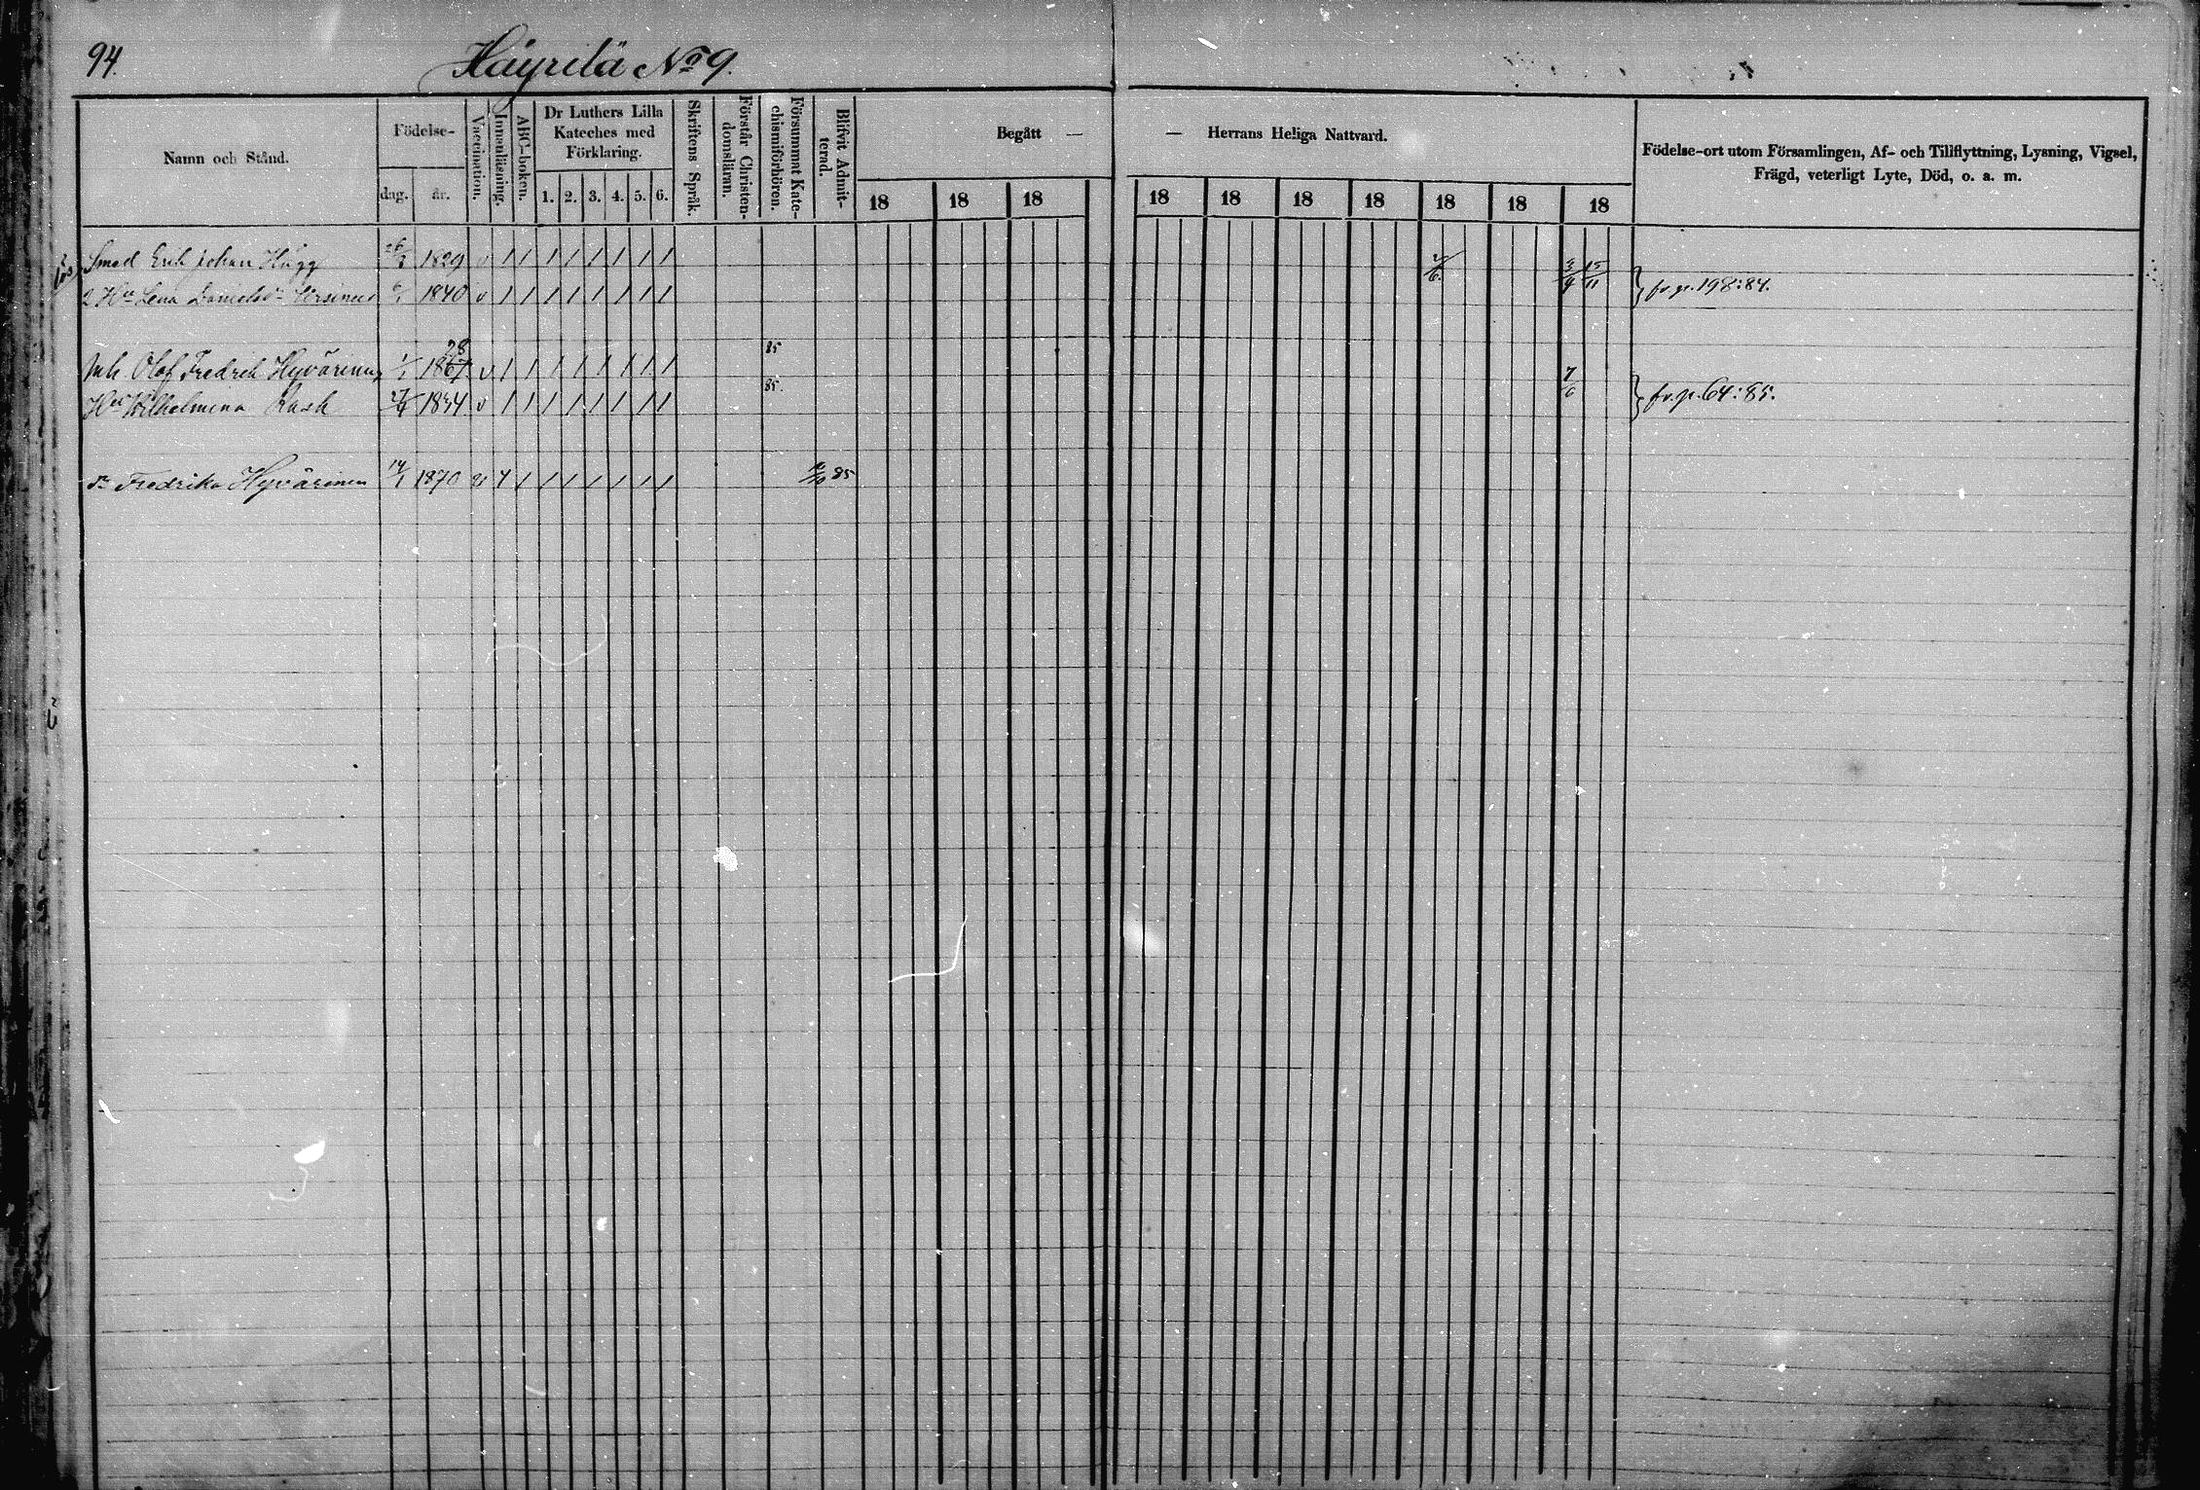 94.
Häyrilä No 9.
Namn och Stånd.
Födelse-
dag.
år.
Vaccination.
Innanläsning.
ABC-boken.
Dr Luthers Lilla
Kateches med
Förklaring.
1. 2. 3. 4. 5. 6.
Skriftens Språk.
Förstår Christen-
domsläran.
Försummat Kate-
chismiförhören.
Blifvit Admit-
terad.
Begått — — Herrans Heliga Nattvard.
18 18 18 18 18 18 18 18 18 18
Födelse-ort utom Församlingen, Af- och Tillflyttning, Lysning, Vigsel,
Frägd, veterligt Lyte, Död, o. a. m.
Smed Erik Johan Hägg 26/3 1829 v / / / / / / / / 2/6 3/9 15/11
2 Hu Lena 1840 v / / / / / / / / fr. p. 198:84.
28 85
Inh Olof Fredrik Hyvärinen 1/1 v / / / / / / / / 7/6
Hu Wilhelmina 1834 v / / / / / / / / 85. fr. p. 64:85.
Fredrika Hyvärinen 14/1 1870 v / / / / / / / 85